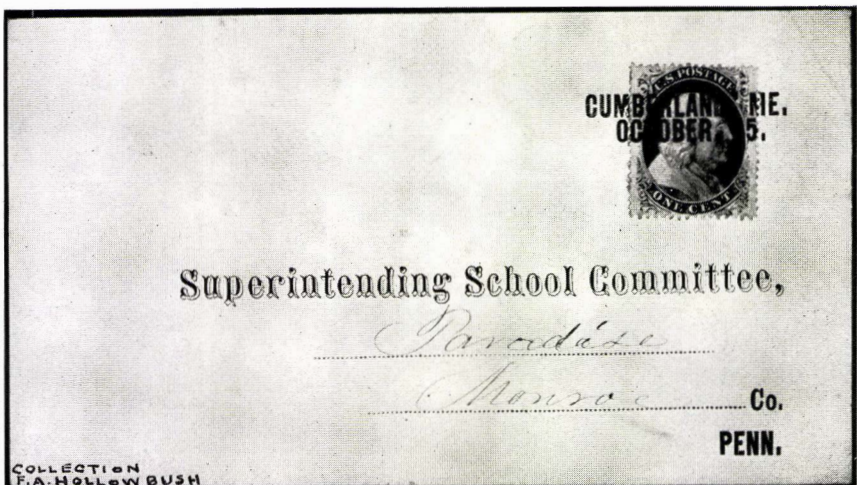 U.S. POSTAGE
CUMBERLAND ME.
OCTOBER 5.
ONE CENT
Superintending School Committee,
Paradise
Monroe Co.
PENN.
COLLECTION
F.A. HOLLOWBUSH